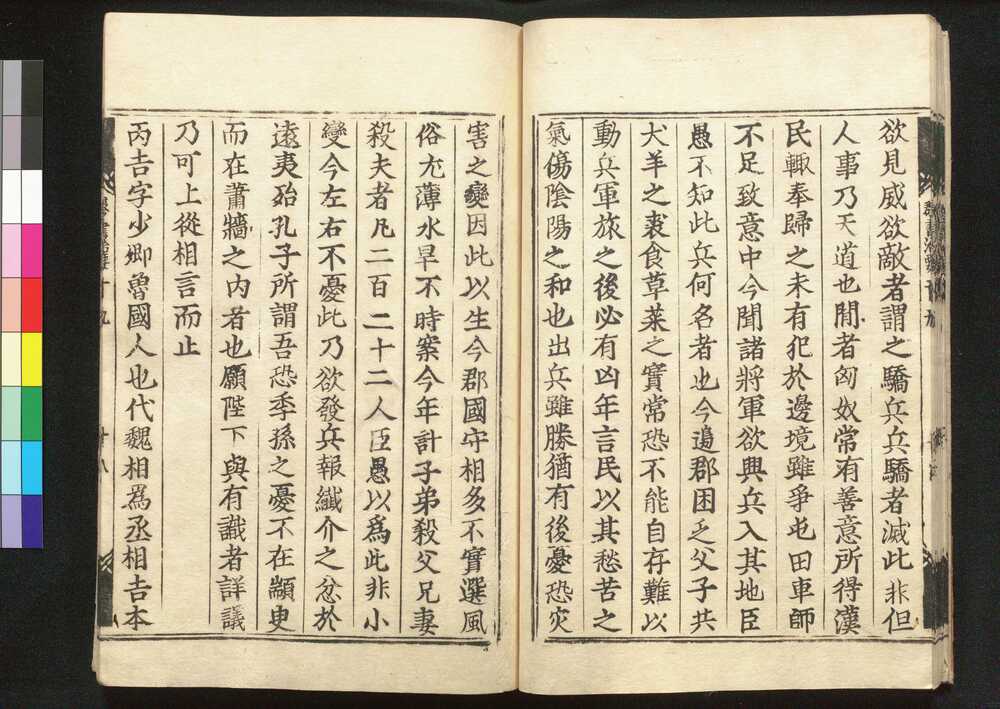 欲見威欲敵者謂之驕兵兵驕者滅此非但
人事乃天道也閒者匈奴常有善意所得漢
民輙奉歸之未有犯於邊境雖爭屯田車師
不足致意中今聞諸將軍欲興兵入其地臣
愚不知此兵何名者也今邉郡困乏父子共
犬羊之裘食草萊之實常恐不能自存難以
動兵軍旅之後必有凶年言民以其愁苦之
氣傷陰陽之和也出兵雖勝猶有後憂恐灾
害之變因此以生今郡國守相多不實選風
俗尤薄水旱不時案今年計子弟殺父兄妻
殺夫者凡二百二十二人臣愚以爲此非小
變今左右不憂此乃欲發兵報纖介之忿於
遠夷殆孔子所謂吾恐季孫之憂不在顓臾
而在蕭牆之内者也願陛下與有識者詳議
乃可上從相言而止
丙吉字少卿魯國人也代魏相爲丞相吉本